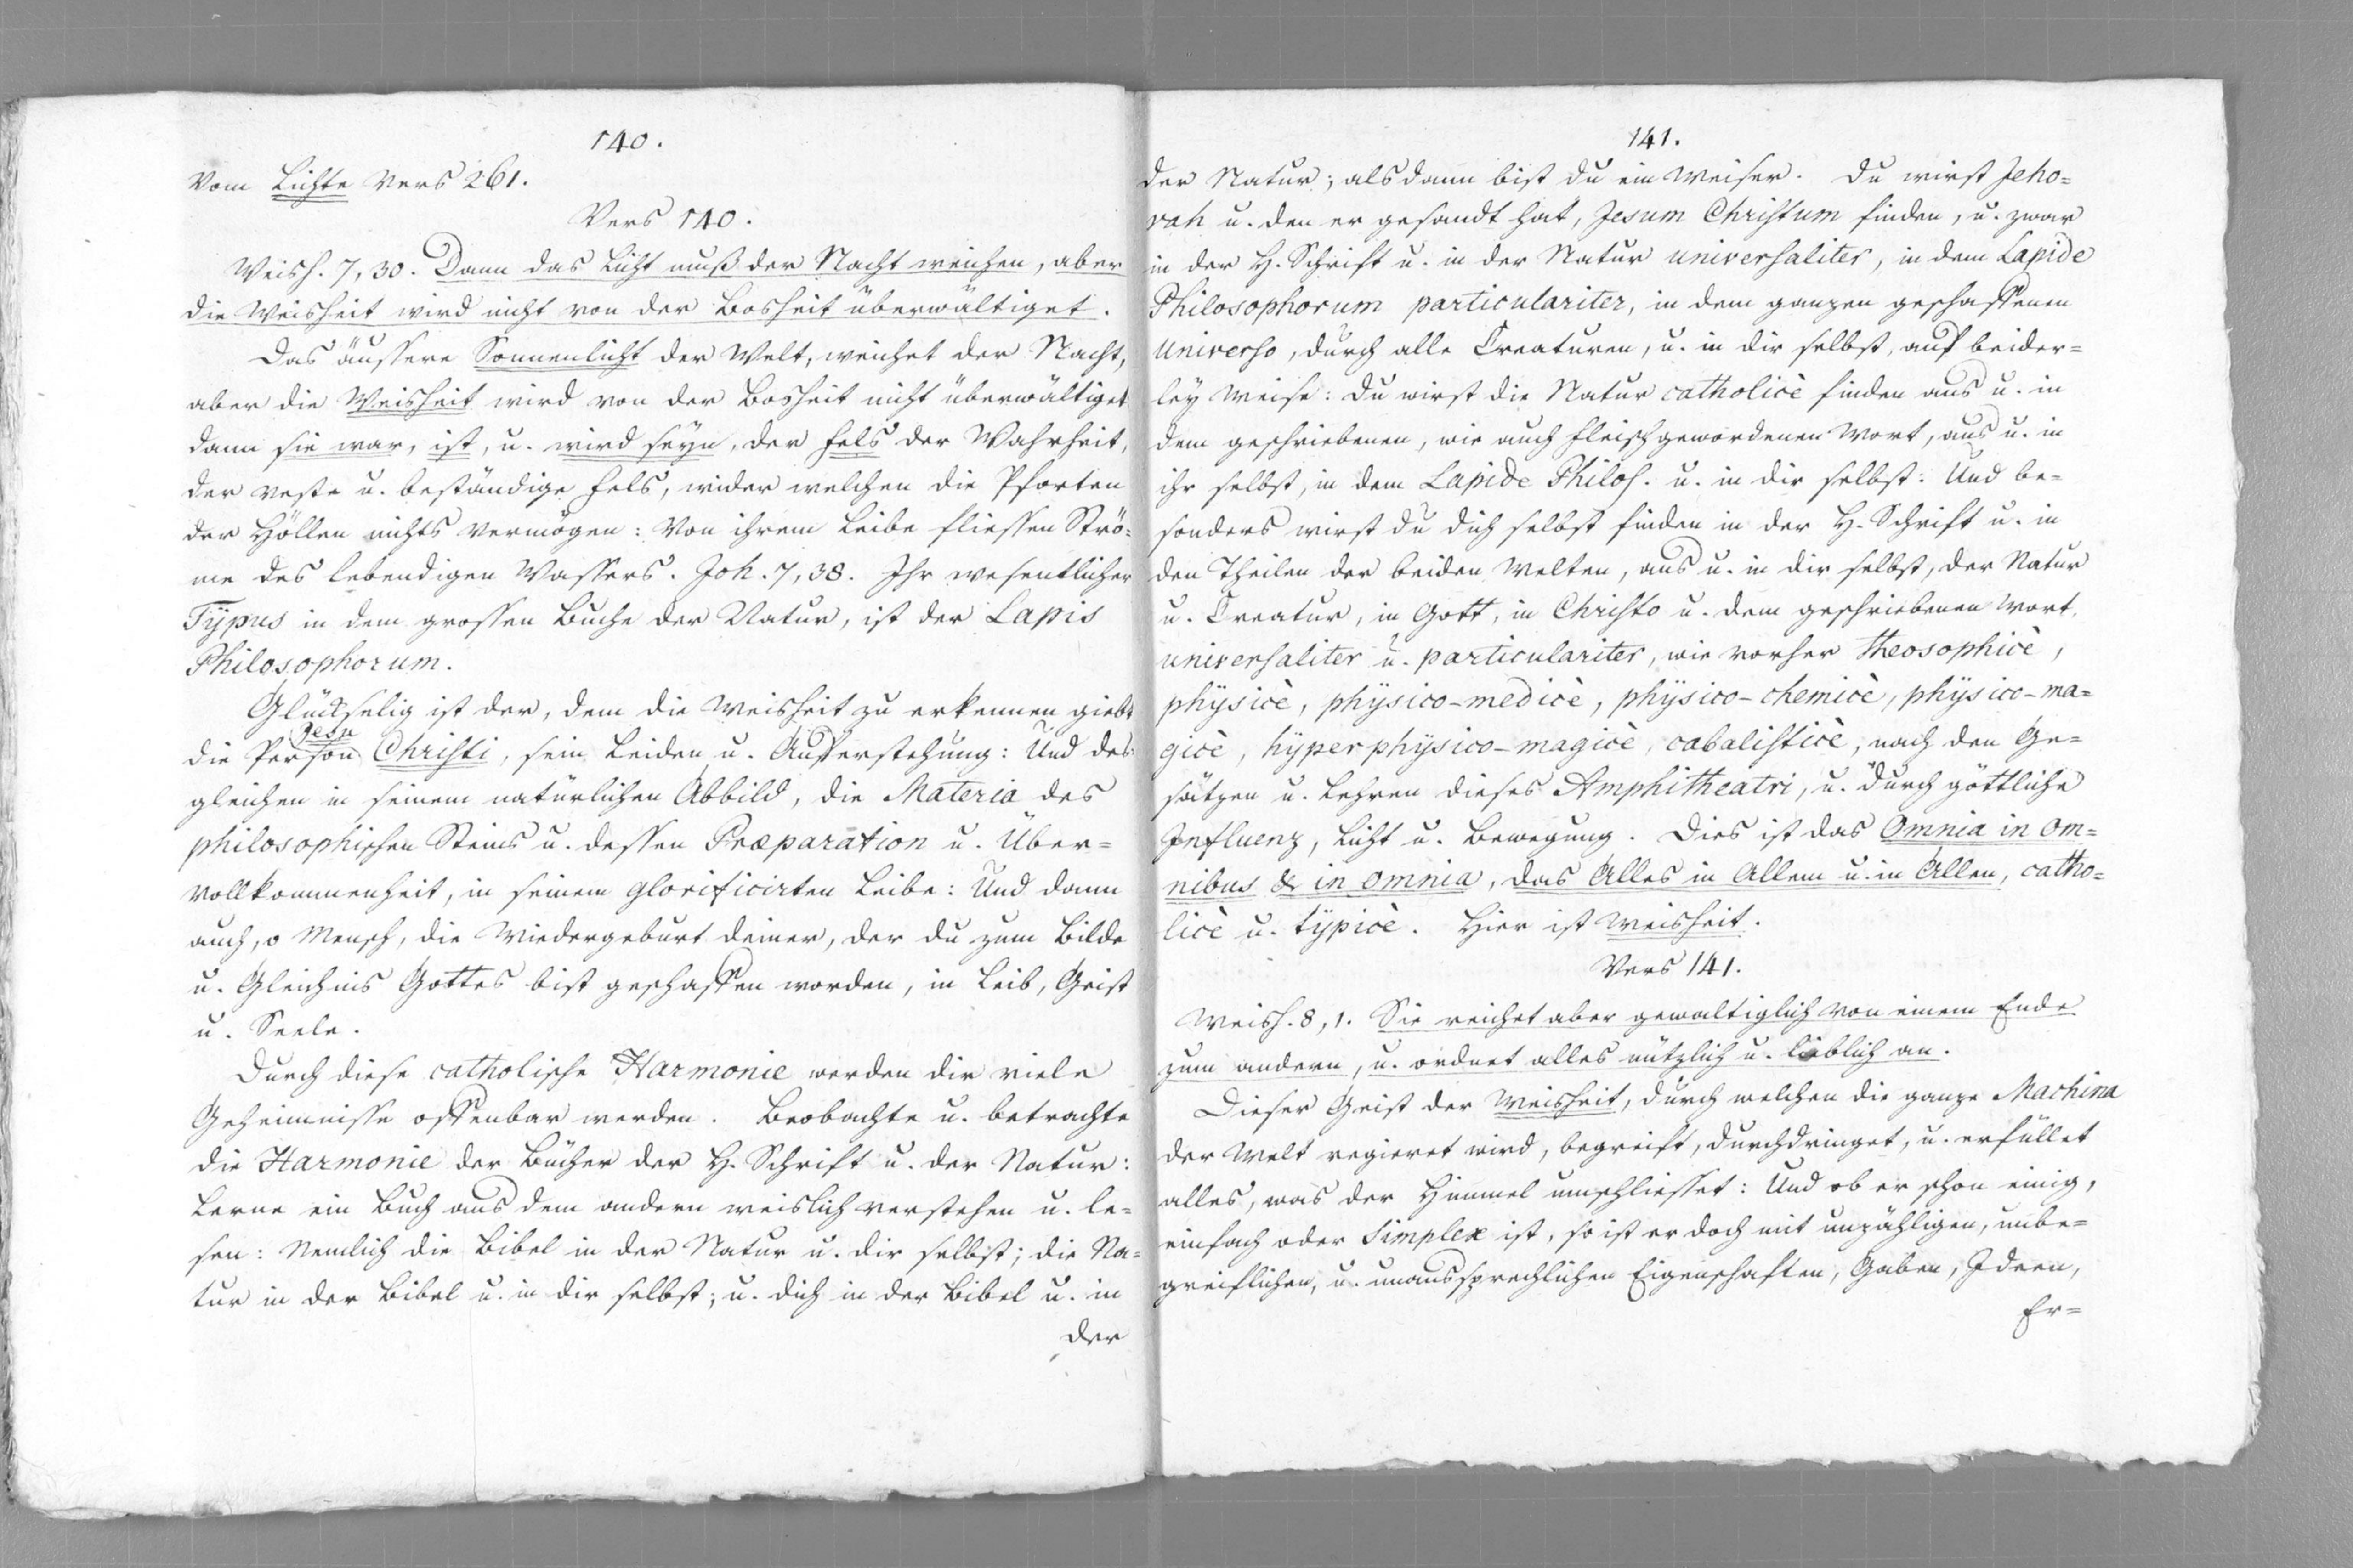 140.
Vom Lichte Vers 261.
Vers 140.
Weish. 7, 30. Dann das Licht muß der Nacht weichen, aber
die Weisheit wird nicht von der Bosheit überwältiget.
Das äussere Sonnenlicht der Welt, weichet der Nacht,
aber die Weisheit wird von der Bosheit nicht überwältiget
dann sie war, ist, u. wird seyn, der Fels der Wahrheit,
der veste u. beständige Fels, wider welchen die Pforten
der Höllen nichts vermögen: Von ihrem Leibe fliessen Strö=
me des lebendigen Wassers. Joh. 7, 38. Ihr wesentlicher
Typus in dem grossen Buche der Natur, ist der Lapis
Philosophorum.
Glückselig ist der, dem die Weisheit zu erkennen giebt
die Person Jesu Christi, sein Leiden u. Auferstehung: Und des
gleichen in seinem natürlichen Abbild, die Materia des
philosophischen Steins u. dessen Præparation u. Über=
vollkommenheit, in seinem glorificirten Leibe: Und dann
auch, o Mensch, die Wiedergeburt deiner, der du zum Bilde
u. Gleichnis Gottes bist geschaffen worden, in Leib, Geist
u. Seele.
Durch diese catholische Harmonie werden dir viele
Geheimnisse offenbar werden. Beobachte u. betrachte
die Harmonie der Bücher der H. Schrift u. der Natur:
Lerne ein Buch aus dem andern weislich verstehen u. le=
sen: Nemlich die Bibel in der Natur u. dir selbst; die Na=
tur in der Bibel u. in dir selbst; u. dich in der Bibel u. in
der
141.
der Natur; alsdann bist du ein Weiser. Du wirst Jeho=
vah u. den er gesandt hat, Jesum Christum finden, u. zwar
in der H. Schrift u. in der Natur universaliter, in dem Lapide
Philosophorum particulariter, in dem ganzen geschaffenen
Universo, durch alle Creaturen, u. in dir selbst, auf beider=
ley Weise: Du wirst die Natur catholicè finden aus u. in
dem geschriebenen, wie auch fleischgewordenen Wort, aus u. in
ihr selbst, in dem Lapide Philos. u. in dir selbst: Und be=
sonders wirst du dich selbst finden in der H. Schrift u. in
den Theilen der beiden Welten, aus u. in dir selbst, der Natur
u. Creatur, in Gott, in Christo u. dem geschriebenen Wort,
universaliter u. particulariter, wie vorher theosophicè,
physicè, physico-medicè, physico-chemicè, physico-ma=
gicè, hyperphysico-magicè, cabalisticè, nach den Ge=
sätzen u. Lehren dieses Amphitheatri, u. durch göttliche
Influenz, Licht u. Bewegung. Dies ist das Omnia in om=
nibus & in omnia, das Alles in Allem u. in Allen, catho=
licè u. typicè. Hier ist Weisheit.
Vers 141.
Weish. 8, 1. Sie reichet aber gewaltiglich von einem Ende
zum andern, u. ordnet alles nützlich u. lieblich an.
Dieser Geist der Weisheit, durch welchen die ganze Machina
der Welt regieret wird, begreift, durchdringet, u. erfüllet
alles, was der Himmel umschliesset: Und ob er schon einig,
einfach oder Simplex ist, so ist er doch mit unzähligen, unbe=
greiflichen, u. unaussprechlichen Eigenschaften, Gaben, Ideen,
Er=